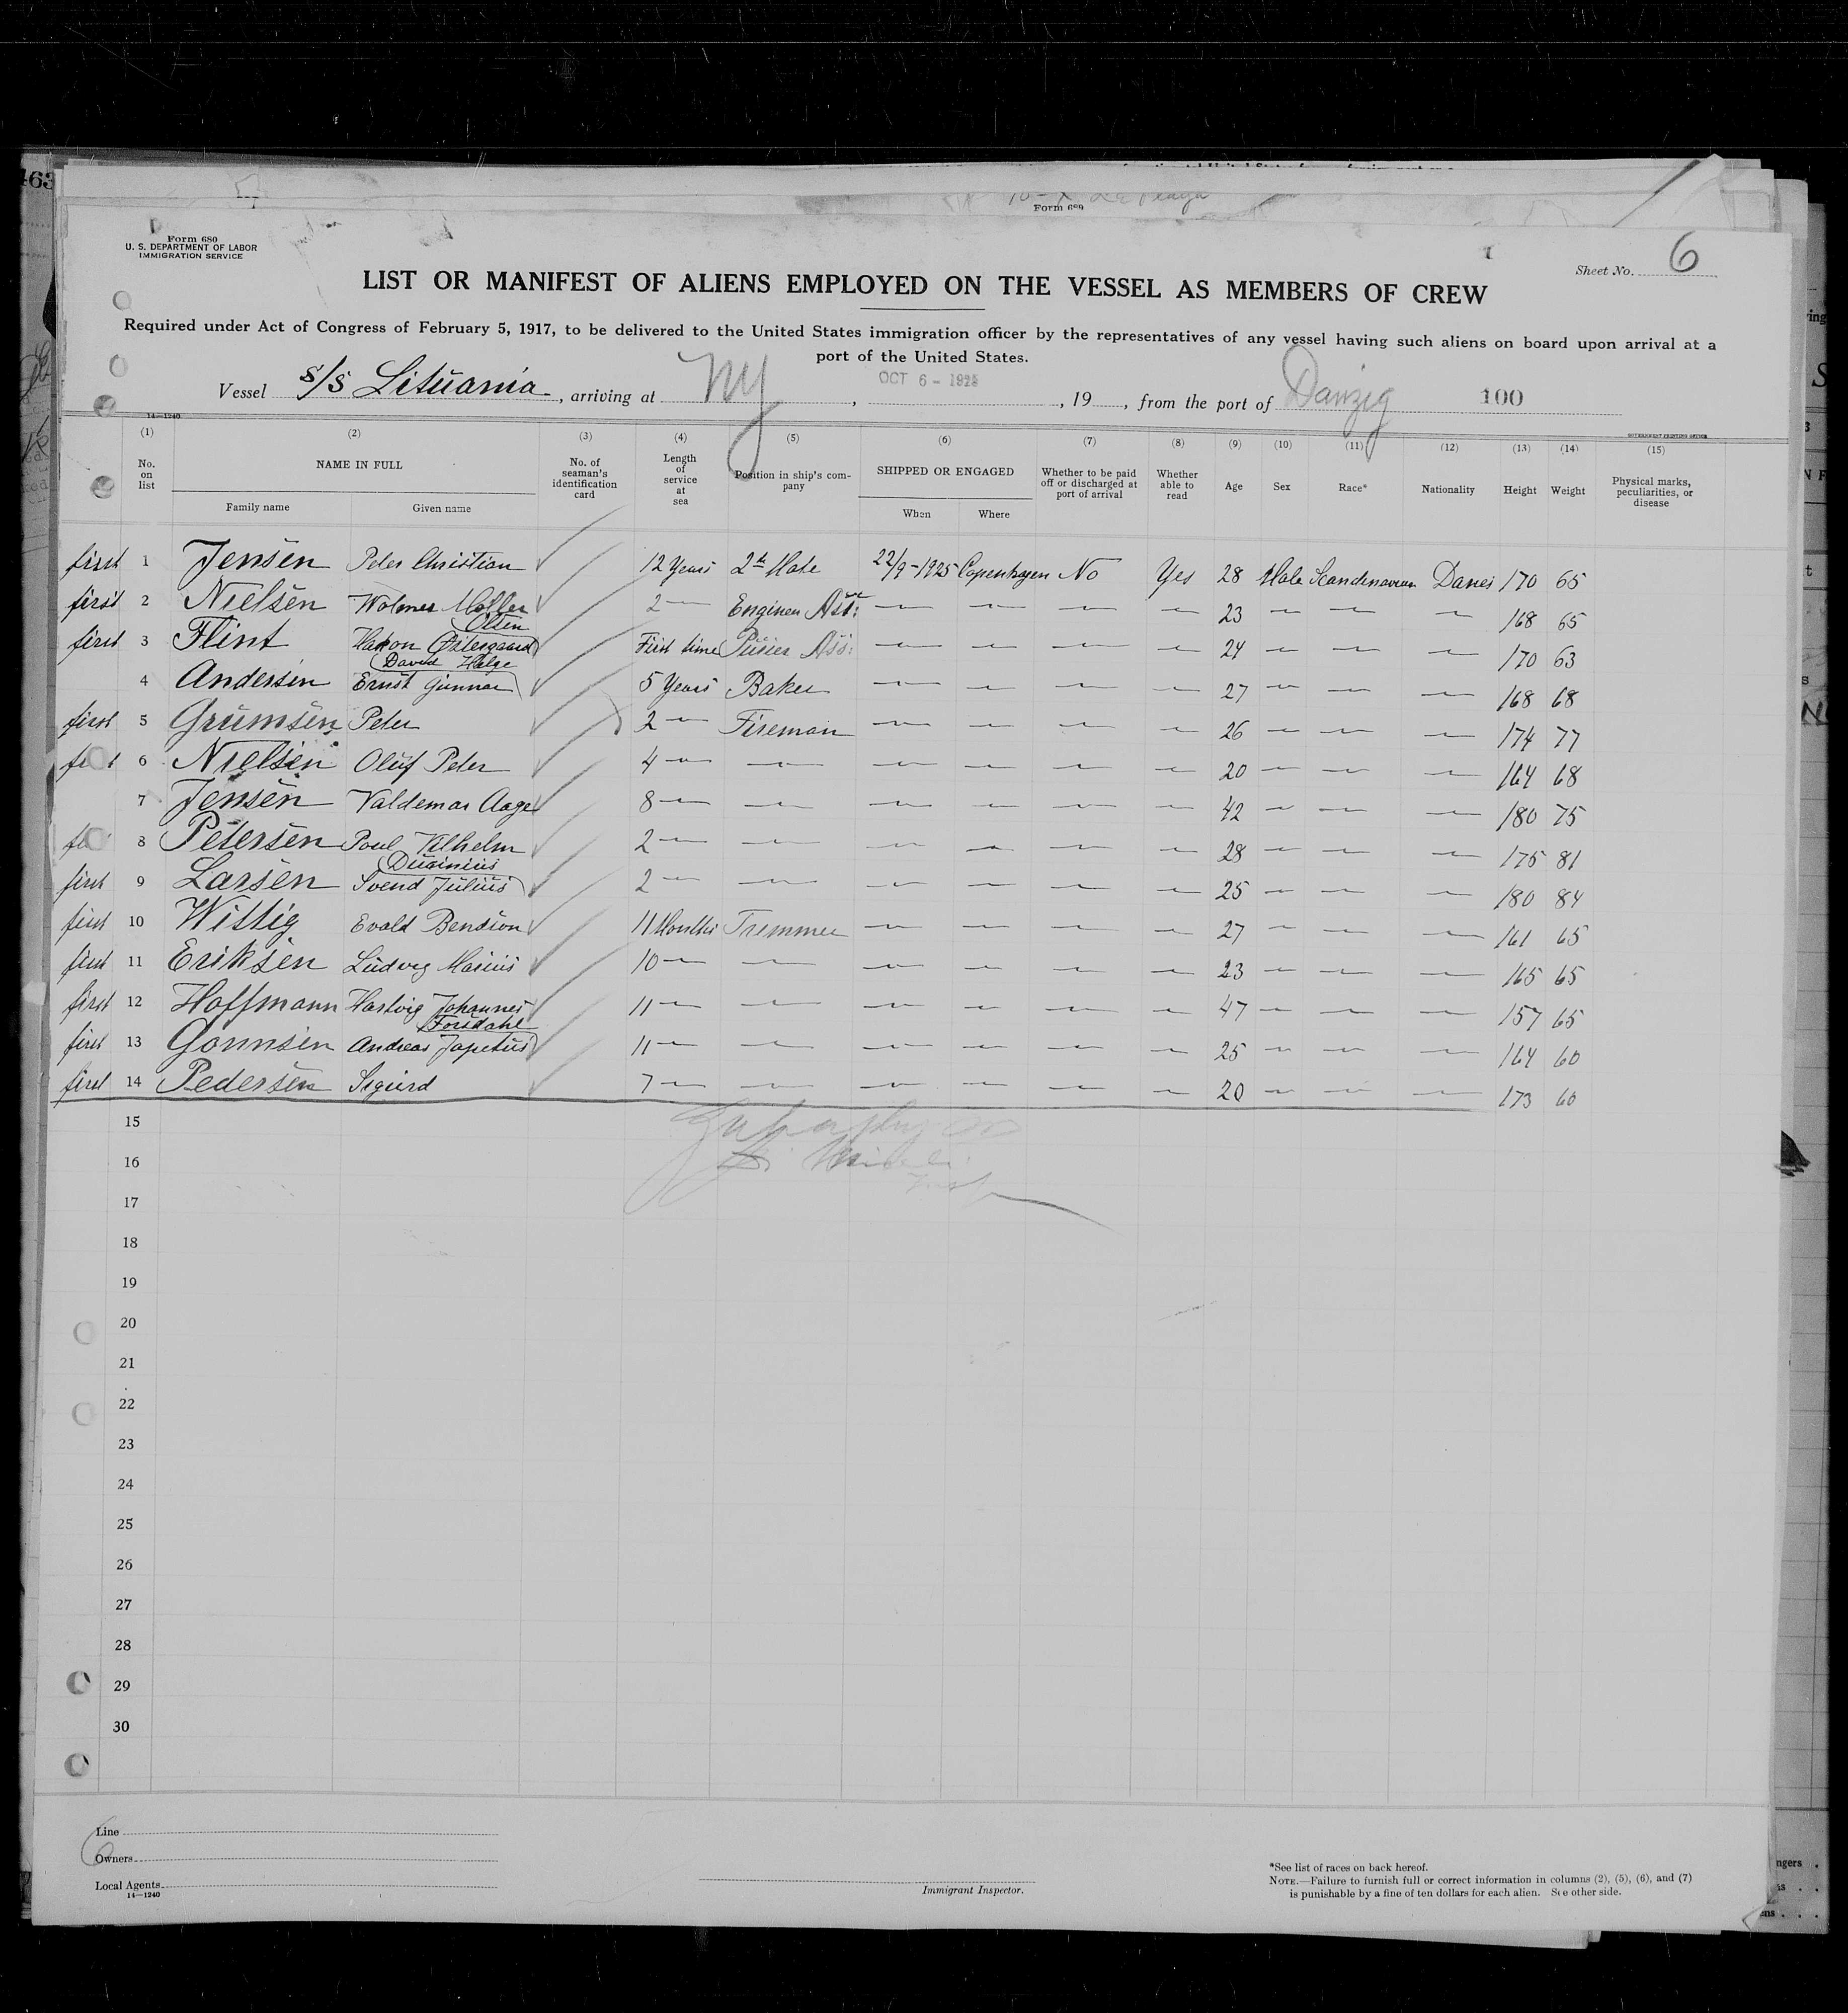 463
Form 689
Form 680
U. S. DEPARTMENT OF LABOR
IMMIGRATION SERVICE
Sheet No. 6
LIST OR MANIFEST OF ALIENS EMPLOYED ON THE VESSEL AS MEMBERS OF CREW
Required under Act of Congress of February 5, 1917, to be delivered to the United States immigration officer by the representatives of any vessel having such aliens on board upon arrival at a
port of the United States.
Vessel S/S Lituania, arriving at NY, OCT 6 - 1925, 19, from the port of Danzig 100
14—1240
GOVERNMENT PRINTING OFFICE
(1) (2) (3) (4) (5) (6) (7) (8) (9) (10) (11) (12) (13) (14) (15)
No. on list
NAME IN FULL
Family name
Given name
No. of seaman's identification card
Length of service at sea
Position in ship's company
SHIPPED OR ENGAGED
When
Where
Whether to be paid off or discharged at port of arrival
Whether able to read
Age
Sex
Race*
Nationality
Height
Weight
Physical marks, peculiarities, or disease
first 1 Jensen Peter Christian 12 Years 2nd Mate 22/9-1925 Copenhagen No Yes 28 Male Scandinavian Danes 170 65
first 2 Nielsen Wolmer Møller 2 — Engineer Ast: — — — — 23 — — — 168 65
first 3 Flint Hakon Østergaard First time Purser Ass: — — — — 24 — — — 170 63
David Helge
4 Andersen Ernst Gunnar 5 Years Baker — — — — 27 — — — 168 68
first 5 Grumsen Peter 2 — Fireman — — — — 26 — — — 174 77
first 6 Nielsen Oluf Peter 4 — — — — — — 20 — — — 164 68
7 Jensen Valdemar Aage 8 — — — — — — 42 — — — 180 75
8 Petersen Poul Vilhelm 2 — — — — — — 28 — — — 175 81
first 9 Larsen Svend Julius 2 — — — — — — 25 — — — 180 84
first 10 Wittig Evald Bendion 11 Months Tremmer — — — — 27 — — — 161 65
first 11 Eriksen Ludvig Marius 10 — — — — — — 23 — — — 165 65
first 12 Hoffmann Hartvig Johannes 11 — — — — — — 47 — — — 157 65
Forsdahl
first 13 Gonnsen Andreas Japetus 11 — — — — — — 25 — — — 164 60
first 14 Pedersen Sigurd 7 — — — — — — 20 — — — 173 60
15
16
17
18
19
20
21
22
23
24
25
26
27
28
29
30
6
Line
Owners
Local Agents
14—1240
Immigrant Inspector.
*See list of races on back hereof.
NOTE.—Failure to furnish full or correct information in columns (2), (5), (6), and (7)
is punishable by a fine of ten dollars for each alien. See other side.